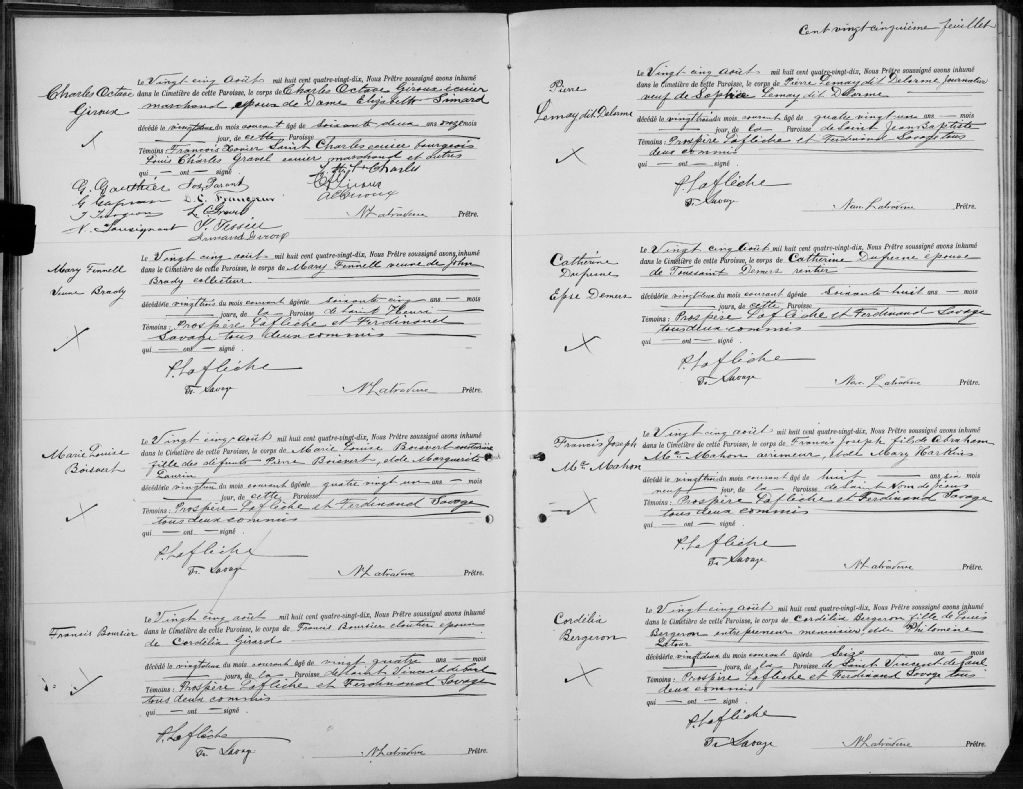 Charles Octave
Giroux
Le Vingt cinq Août mil huit cent quatre-vingt-dix, Nous Prêtre soussigné avons inhumé
dans le Cimetière de cette Paroisse, le corps de Charles Octave Giroux écuier
marchand epoux de Dame Elizabeth Simard
décédé le vingtdeux du mois courant âgé de Soixante deux ans onze mois
jour, de cette Paroisse
Témoins: François Xavier Saint Charles écuier bourgeois
Louis Charles Gravel écuier marchand et autres
qui — ont — signé.
G. Gauthier Jos. Parent
L. C. Gravel
Armand Giroux
A. C. Giroux
N Latraverse Prêtre.
Mary Fennell
Veuve Brady
Le Vingt cinq août mil huit cent quatre-vingt-dix, Nous Prêtre soussigné avons inhumé
dans le Cimetière de cette Paroisse, le corps de Mary Fennell veuve de John
Brady collecteur
décédée le vingttrois du mois courant âgée de Soixante cinq ans — mois
jours, de la Paroisse de Saint Henri
Témoins: Prospère Laflèche et Ferdinand
Savage tous deux commis
qui — ont — signé.
P. Laflèche
Fr. Savage
N Latraverse Prêtre.
Marie Louise
Boisvert
Le Vingt cinq août mil huit cent quatre-vingt-dix, Nous Prêtre soussigné avons inhumé
dans le Cimetière de cette Paroisse, le corps de Marie Louise Boisvert
fille des defunts Pierre Boisvert et de Marguerite
Laurin
décédée le vingttrois du mois courant âgée de quatre vingt un ans — mois
jour, de cette Paroisse
Témoins: Prospère Laflèche et Ferdinand Savage
tous deux commis
qui — ont — signé.
P. Laflèche
Fr. Savage
N Latraverse Prêtre.
Francis Boursier
Le Vingt cinq août mil huit cent quatre-vingt-dix, Nous Prêtre soussigné avons inhumé
dans le Cimetière de cette Paroisse, le corps de Francis Boursier cloutier epoux
de Cordélia Girard
décédé le vingtdeux du mois courant âgé de vingt quatre ans — mois
jours, de la Paroisse de Saint Vincent de Paul
Témoins: Prospère Laflèche et Ferdinand Savage
tous deux commis
qui — ont — signé.
P. Laflèche
Fr. Savage
N Latraverse Prêtre.
Cent vingt cinquième feuillet
Pierre
Lemay dit Delorme
Le Vingt cinq août mil huit cent quatre-vingt-dix, Nous Prêtre soussigné avons inhumé
dans le Cimetière de cette Paroisse, le corps de Pierre Lemay dit Delorme journalier
veuf de Sophie Lemay dit Delorme
décédé le vingttrois du mois courant âgé de quatre vingt onze ans — mois
jour, de la Paroisse de Saint Jean Baptiste
Témoins: Prospère Laflèche et Ferdinand Savage tous
deux commis
qui — ont — signé.
P. Laflèche
Fr. Savage
Narc. Latraverse Prêtre.
Catherine
Dufresne
Epse Demers
Le Vingt cinq Août mil huit cent quatre-vingt-dix, Nous Prêtre soussigné avons inhumé
dans le Cimetière de cette Paroisse, le corps de Catherine Dufresne epouse
de Toussaint Demers rentier
décédée le vingtdeux du mois courant âgée de Soixante huit ans — mois
jours, de cette Paroisse
Témoins: Prospère Laflèche et Ferdinand Savage
tous deux commis
qui — ont — signé.
P. Laflèche
Fr. Savage
Narc. Latraverse Prêtre.
Francis Joseph
Mc Mahon
Le Vingt cinq août mil huit cent quatre-vingt-dix, Nous Prêtre soussigné avons inhumé
dans le Cimetière de cette Paroisse, le corps de Francis Joseph fils de Abraham
Mc Mahon arimeur, et de Mary Harkins
décédé le vingttrois du mois courant âgé de huit ans six mois
neuf jour, de la Paroisse de Saint Nom de Jésus
Témoins: Prospère Laflèche et Ferdinand Savage
tous deux commis
qui — ont — signé.
P. Laflèche
Fr. Savage
N Latraverse Prêtre.
Cordélia
Bergeron
Le Vingt cinq août mil huit cent quatre-vingt-dix, Nous Prêtre soussigné avons inhumé
dans le Cimetière de cette Paroisse, le corps de Cordélia Bergeron fille de Louis
Bergeron entrepreneur menuisier, et de Philomène
Latour
décédée le vingtdeux du mois courant âgée de Seize ans — mois
jours, de la Paroisse de Saint Vincent de Paul
Témoins: Prospère Laflèche et Ferdinand Savage tous
deux commis
qui — ont — signé.
P. Laflèche
Fr. Savage
N Latraverse Prêtre.